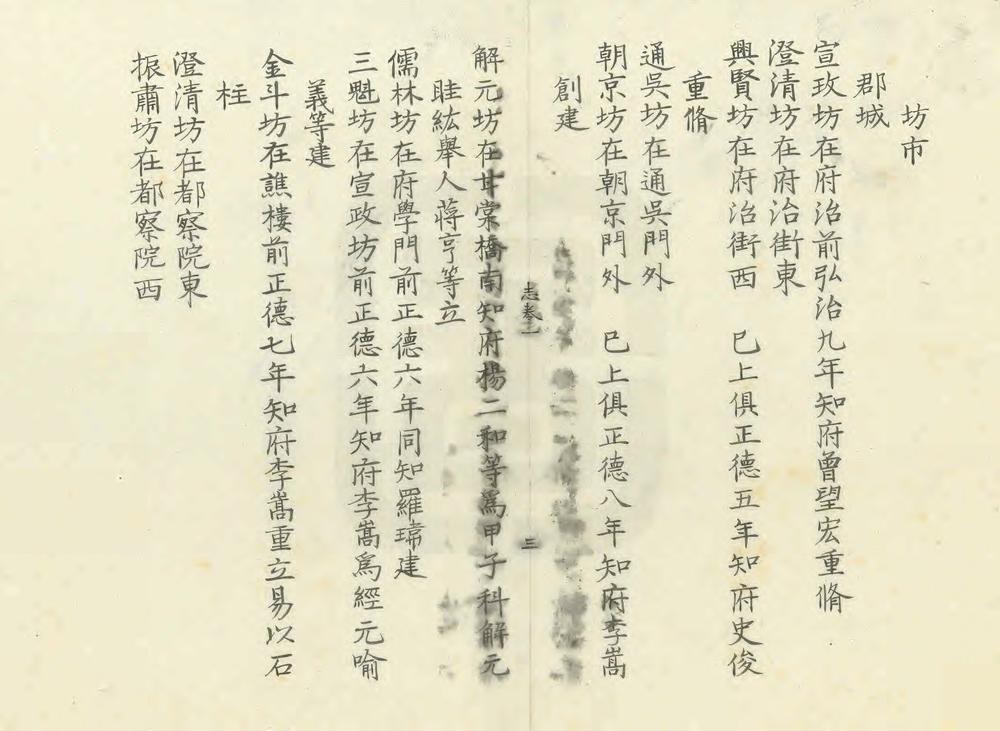 坊市
郡城
宣政坊在府治前弘治九年知府曾望宏重脩
澄清坊在府治街東
興賢坊在府治街西 已上俱正德五年知府史俊
重脩
通吳坊在通吳門外
朝京坊在朝京門外 已上俱正德八年知府李嵩
創建
志卷二
三
解元坊在甘棠橋南知府楊二和等爲甲子科解元
眭紘舉人蔣亨等立
儒林坊在府學門前正德六年同知羅瑋建
三魁坊在宣政坊前正德六年知府李嵩爲經元喻
義等建
金斗坊在譙樓前正德七年知府李嵩重立易以石
柱
澄清坊在都察院東
振肅坊在都察院西